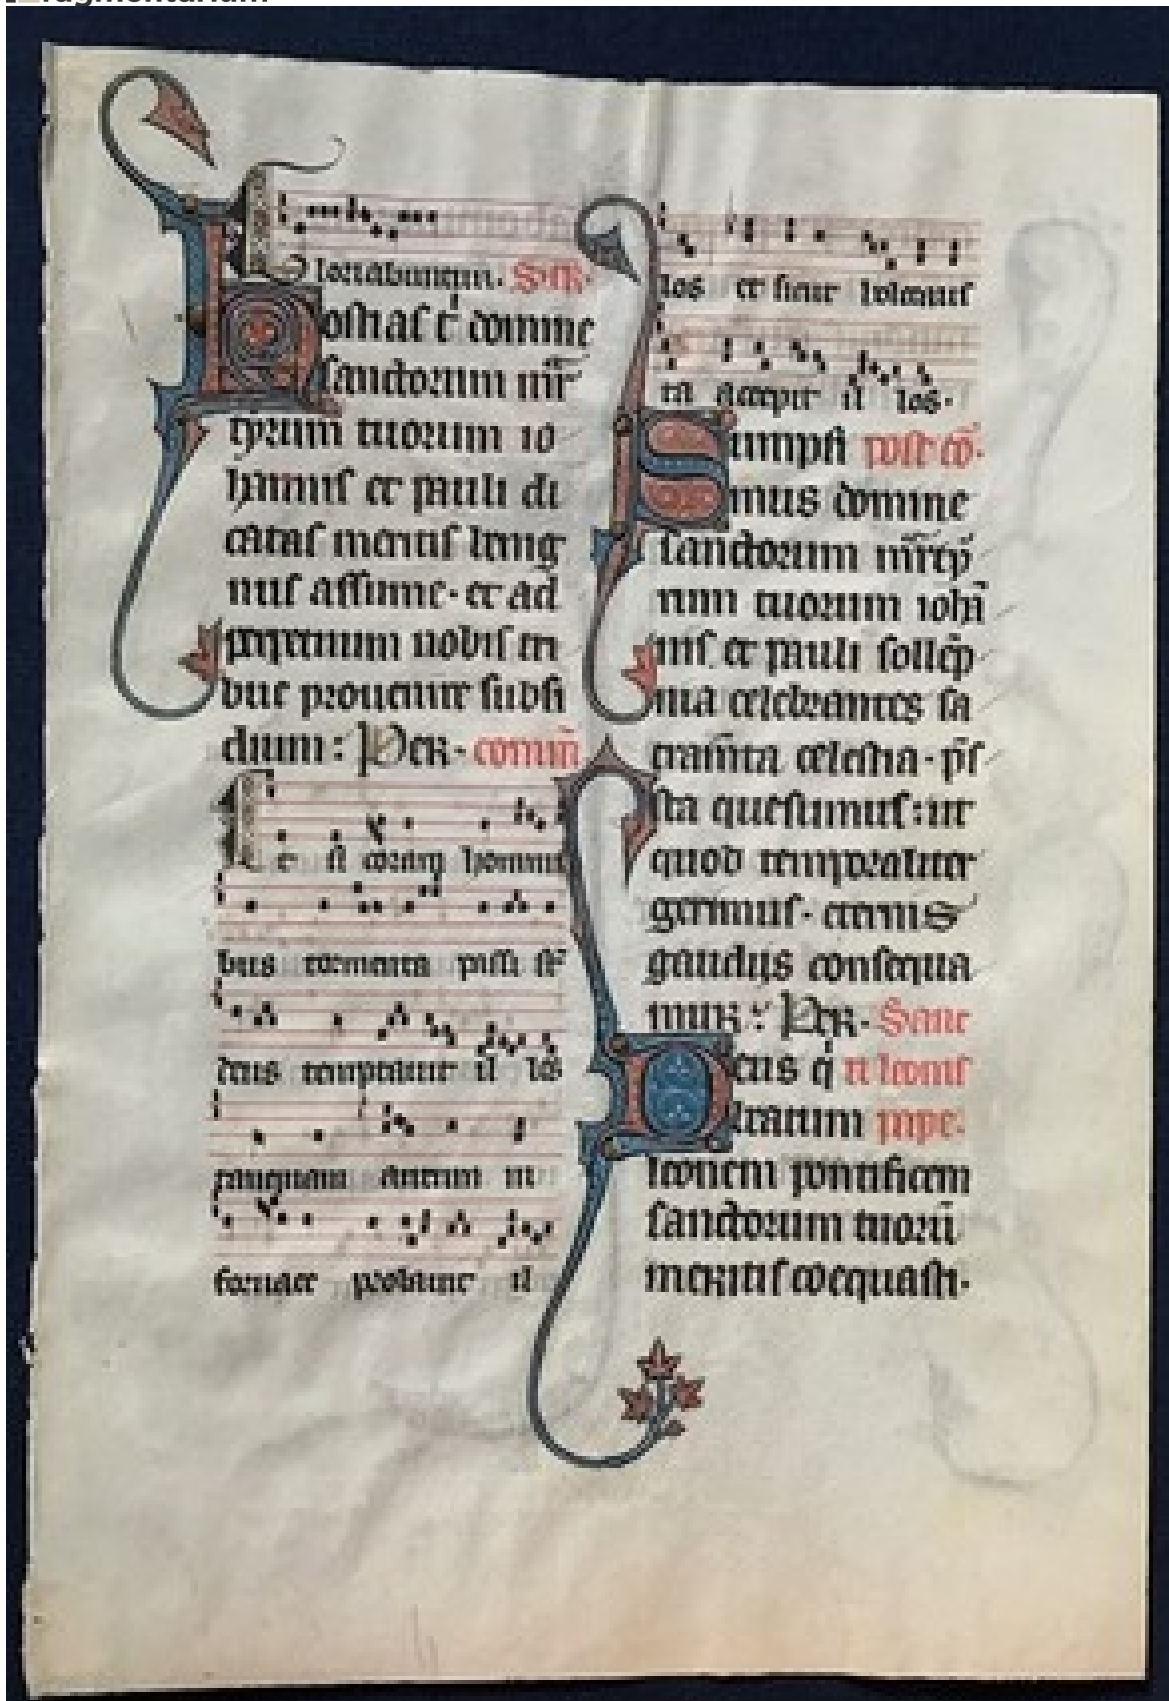 fragmentarium
Gloriabuntur. Secr.
Hostias t domine
sanctorum mr
tyrum tuorum io
hannis et pauli di
catas meritis benig
nus assume. et ad
perpetuum nobis tri
bue provenire subsi
dium: Per. comm
Et si coram homini
bus tormenta passi st
deus temptavit il los
tanquam aurum in
fornace probavit il
los et sicut holocaus
ta accepit il los.
Sumpsi post co.
mus domine
sanctorum mrty
rum tuorum ioha
nis et pauli sollep
nia celebrantes sa
cramta celestia. ps
sta quesumus: ut
quod temporaliter
gerimus. eternis
gaudijs consequa
mur: Per. Sanc
Deus q ti leonis
beatum pape.
leonem pontificem
sanctorum tuoru
meritis coequasti.